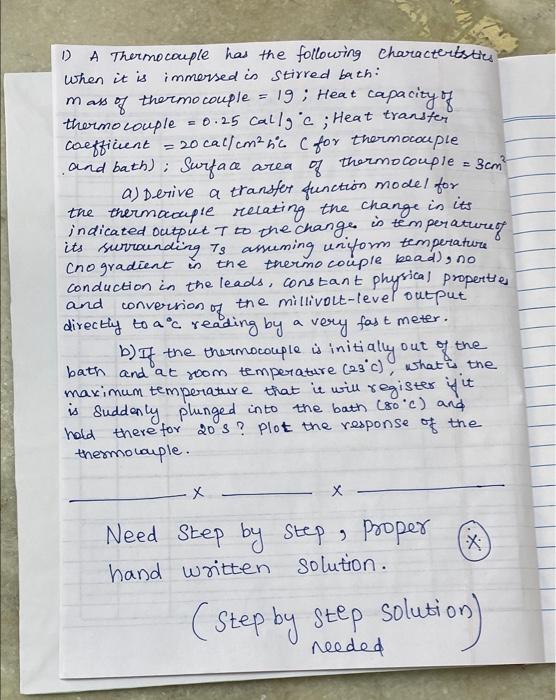 1) A Thermocouple has the following characteristics
when it is immersed in stirred bath:
mass of thermocouple = 1g ; Heat capacity of
thermocouple = 0.25 cal/g°c ; Heat transfer
coefficient = 20 cal/cm² h°c ( for thermocouple
and bath) ; Surface area of thermocouple = 3cm²
a) Derive a transfer function model for
the thermocouple relating the change in its
indicated output T to the change in temperature of
its surrounding Ts assuming uniform temperature
(no gradient in the thermocouple bead), no
conduction in the leads, constant physical properties
and conversion of the millivolt-level output
directly to a °c reading by a very fast meter.
b) If the thermocouple is initially out of the
bath and at room temperature (23°c), what is the
maximum temperature that it will register if it
is suddenly plunged into the bath (80°c) and
held there for 20 s ? Plot the response of the
thermocouple.
x x
Need Step by Step , Proper
hand written solution.
(Step by Step solution)
needed